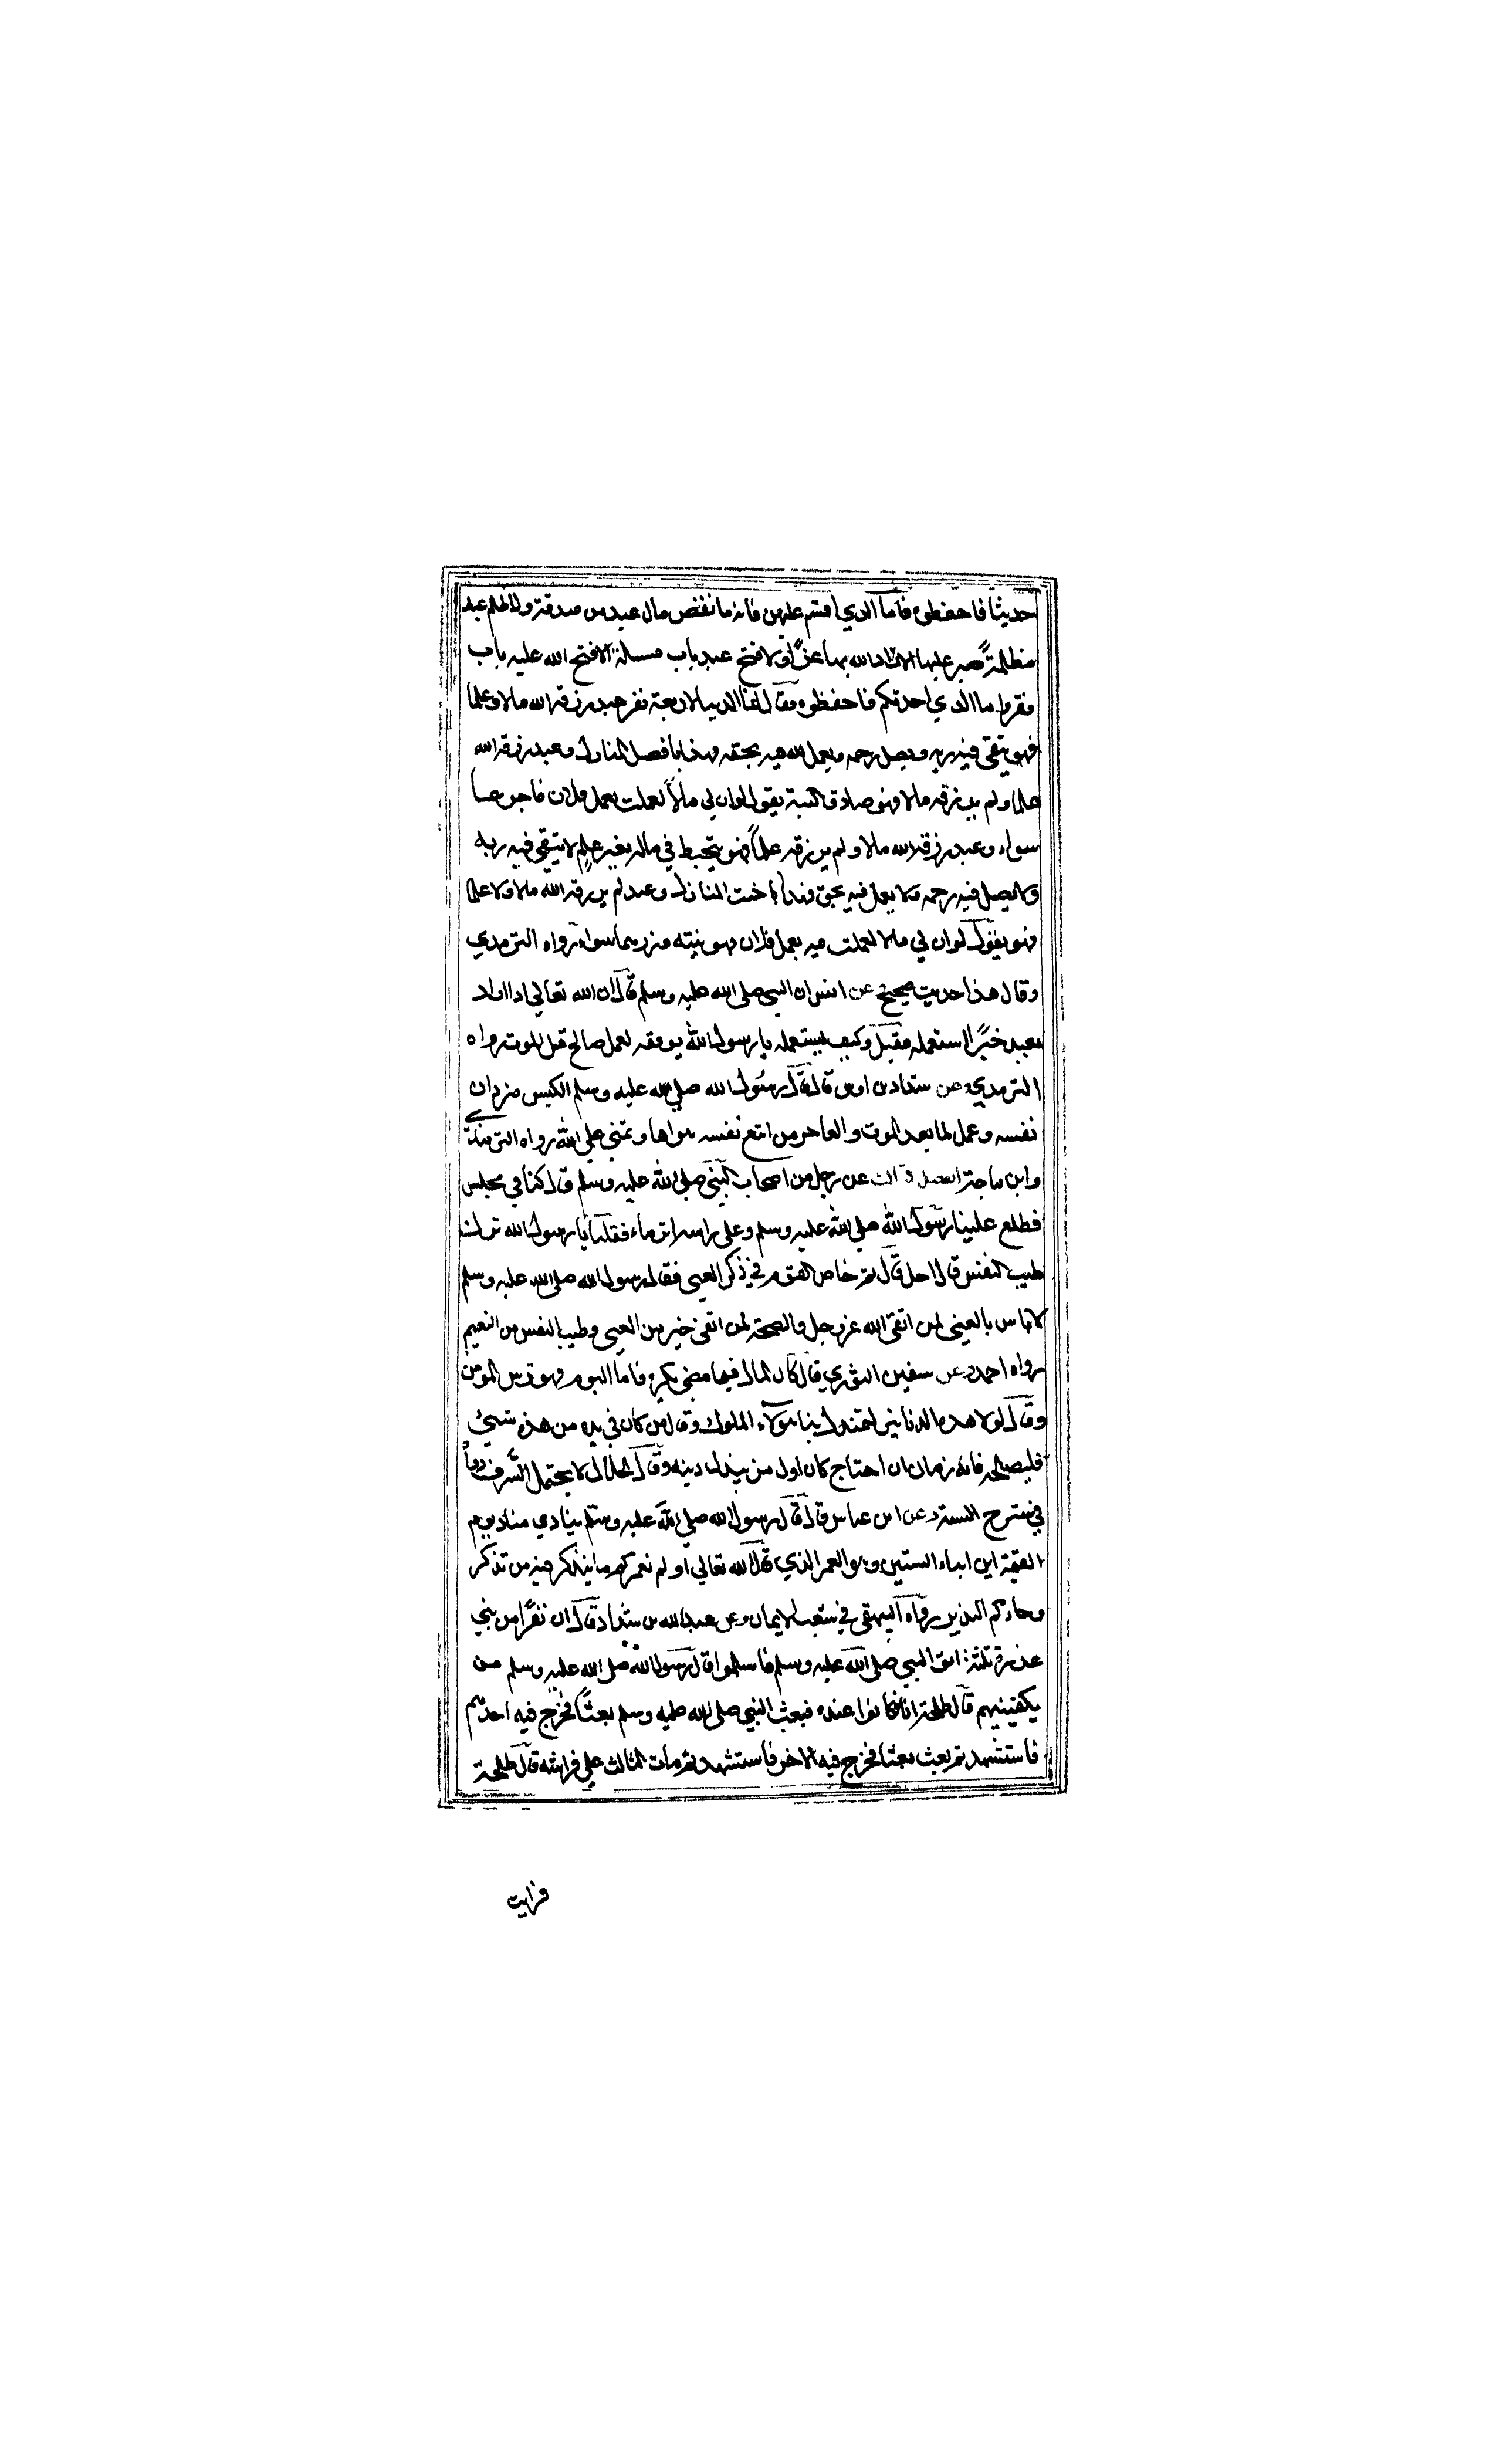 حديثا فاحفظوه فاما الذي اقسم عليهن فانه ما نقص مال عبد من صدقة ولا ظلم عبد
مظلمة صبر عليها الا زاد الله بها عزا ولا فتح عبد باب مسالة الا فتح الله عليه باب
فقر واما الذي احدثكم فاحفظوه فقال انما الدنيا لاربعة نفر عبد رزقه الله مالا وعلما
فهو يتقي فيه ربه ويصل رحمه ويعمل لله فيه بحقه فهذا بافضل المنازل وعبد رزقه الله
علما ولم يرزقه مالا فهو صادق النية يقول لو ان لي مالا لعملت بعمل فلان فاجرهما
سواء وعبد رزقه الله مالا ولم يرزقه علما فهو يتخبط في ماله بغير علم لا يتقي فيه ربه
ولا يصل فيه رحمه ولا يعمل فيه بحق فهذا باخبث المنازل وعبد لم يرزقه الله مالا ولا علما
فهو يقول لو ان لي مالا لعملت فيه بعمل فلان فهو نيته ووزرهما سواء رواه الترمذي
وقال هذا حديث صحيح عن انس ان النبي صلى الله عليه وسلم قال ان الله تعالي اذا اراد
بعبد خيرا استعمله فقيل وكيف يستعمله يا رسول الله يوفقه لعمل صالح قبل الموت رواه
الترمذي وعن شداد بن اوس قال قال رسول الله صلي الله عليه وسلم الكيس من دان
نفسه وعمل لما بعد الموت والعاجز من اتبع نفسه هواها وتمني علي الله رواه الترمذي
وابن ماجة الفصل الثالث عن رجل من اصحاب النبي صلي الله عليه وسلم قال كنا في مجلس
فطلع علينا رسول الله صلي الله عليه وسلم وعلى راسه اثر ماء فقلنا يا رسول الله نراك
طيب النفس قال اجل قال ثم خاض القوم في ذكر الغني فقال رسول الله صلى الله عليه وسلم
لا باس بالغني لمن اتقي الله عز وجل والصحة لمن اتقى خير من الغني وطيب النفس من النعيم
رواه احمد وعن سفين الثوري قال كان المال فيما مضي يكره فاما اليوم فهو ترس المومن
وقال لولا هذه الدنانير لتمندل بنا هولاء الملوك وقال من كان في يده من هذه شيئ
فليصلحه فانه زمان ان احتاج كان اول من يبذل دينه وقال الحلال لا يحتمل السرف رواه
في شرح السنة وعن ابن عباس قال قال رسول الله صلي الله عليه وسلم ينادي مناد يوم
القيمة اين ابناء الستين وهو العمر الذي قال الله تعالي او لم نعمركم ما يتذكر فيه من تذكر
وجاءكم النذير رواه البيهقي في شعب الايمان وعن عبد الله بن شداد قال ان نفرا من بني
عذرة ثلثة اتوا النبي صلى الله عليه وسلم فاسلموا قال رسول الله صلى الله عليه وسلم من
يكفينيهم قال طلحة انا فكانوا عنده فبعث النبي صلى الله عليه وسلم بعثا فخرج فيه احدهم
فاستشهد ثم بعث بعثا فخرج فيه الاخر فاستشهد ثم مات الثالث علي فراشه قال طلحة
فرايت